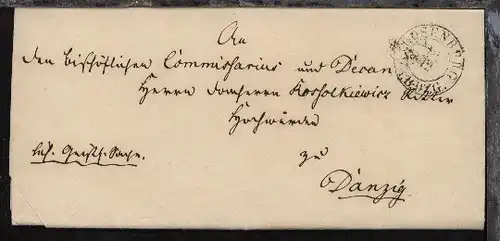 An
den bischöflichen Commissarius und Decan
Herrn Domherrn Kossolkiewicz Ritter
Hochwürden
zu
Danzig.
Geistl. Sache.